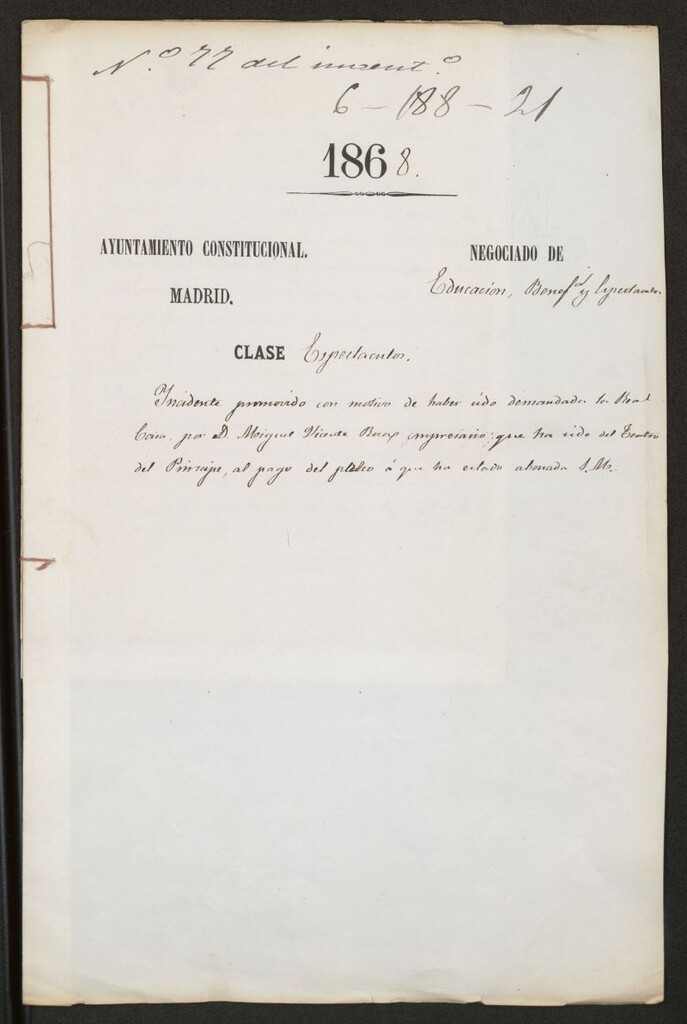 N.º 77 del invent.º
6-188-21
1868.
AYUNTAMIENTO CONSTITUCIONAL.
MADRID.
NEGOCIADO DE
Educacion, Benef.ª y Espectaculos
CLASE Espectaculos.
Incidente promovido con motivo de haber sido demandada la Real
Casa, por D. Miguel Vicente empresario que ha sido del Teatro
del Principe, al pago del palco á que ha estado abonada S. M.